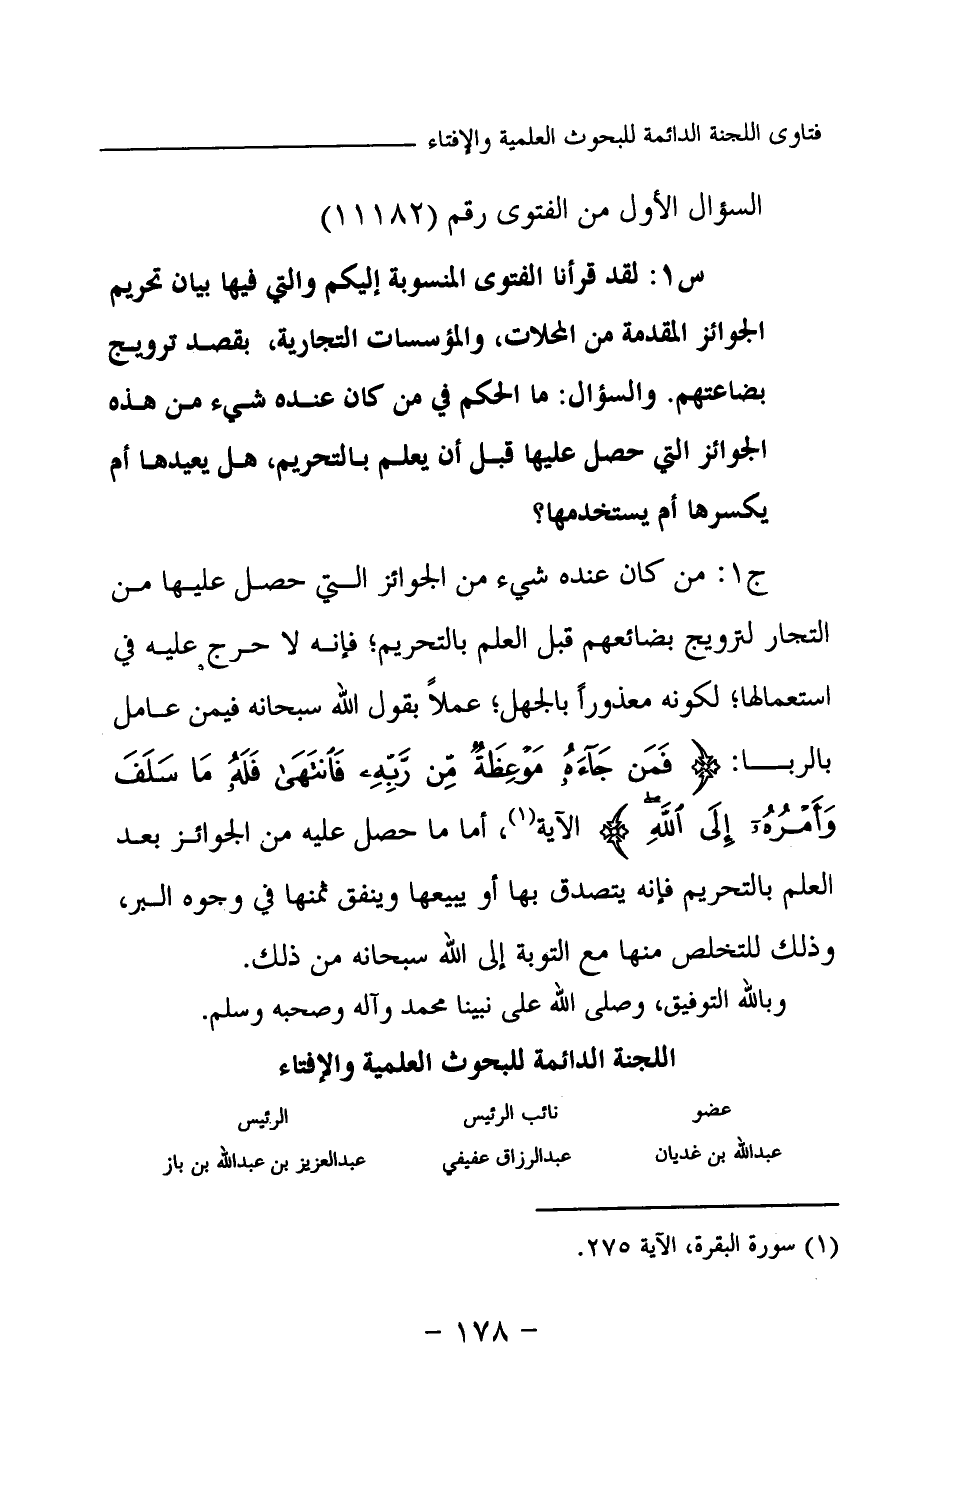 فتاوى اللجنة الدائمة للبحوث العلمية والإفتاء
السؤال الأول من الفتوى رقم (١١١٨٢)
س١: لقد قرأنا الفتوى المنسوبة إليكم والتي فيها بيان تحريم
الجوائز المقدمة من المحلات، والمؤسسات التجارية، بقصد ترويج
بضاعتهم. والسؤال: ما الحكم في من كان عنده شيء من هذه
الجوائز التي حصل عليها قبل أن يعلم بالتحريم، هل يعيدها أم
يكسرها أم يستخدمها؟
ج١: من كان عنده شيء من الجوائز التي حصل عليها من
التجار لترويج بضائعهم قبل العلم بالتحريم؛ فإنه لا حرج عليه في
استعمالها؛ لكونه معذوراً بالجهل؛ عملاً بقول الله سبحانه فيمن عامل
بالربا: ﴿ فَمَن جَآءَهُۥ مَوْعِظَةٌ مِّن رَّبِّهِۦ فَٱنتَهَىٰ فَلَهُۥ مَا سَلَفَ
وَأَمْرُهُۥٓ إِلَى ٱللَّهِۖ ﴾ الآية(١)، أما ما حصل عليه من الجوائز بعد
العلم بالتحريم فإنه يتصدق بها أو يبيعها وينفق ثمنها في وجوه البر،
وذلك للتخلص منها مع التوبة إلى الله سبحانه من ذلك.
وبالله التوفيق، وصلى الله على نبينا محمد وآله وصحبه وسلم.
اللجنة الدائمة للبحوث العلمية والإفتاء
عضو نائب الرئيس الرئيس
عبدالله بن غديان عبدالرزاق عفيفي عبدالعزيز بن عبدالله بن باز
(١) سورة البقرة، الآية ٢٧٥.
- ١٧٨ -